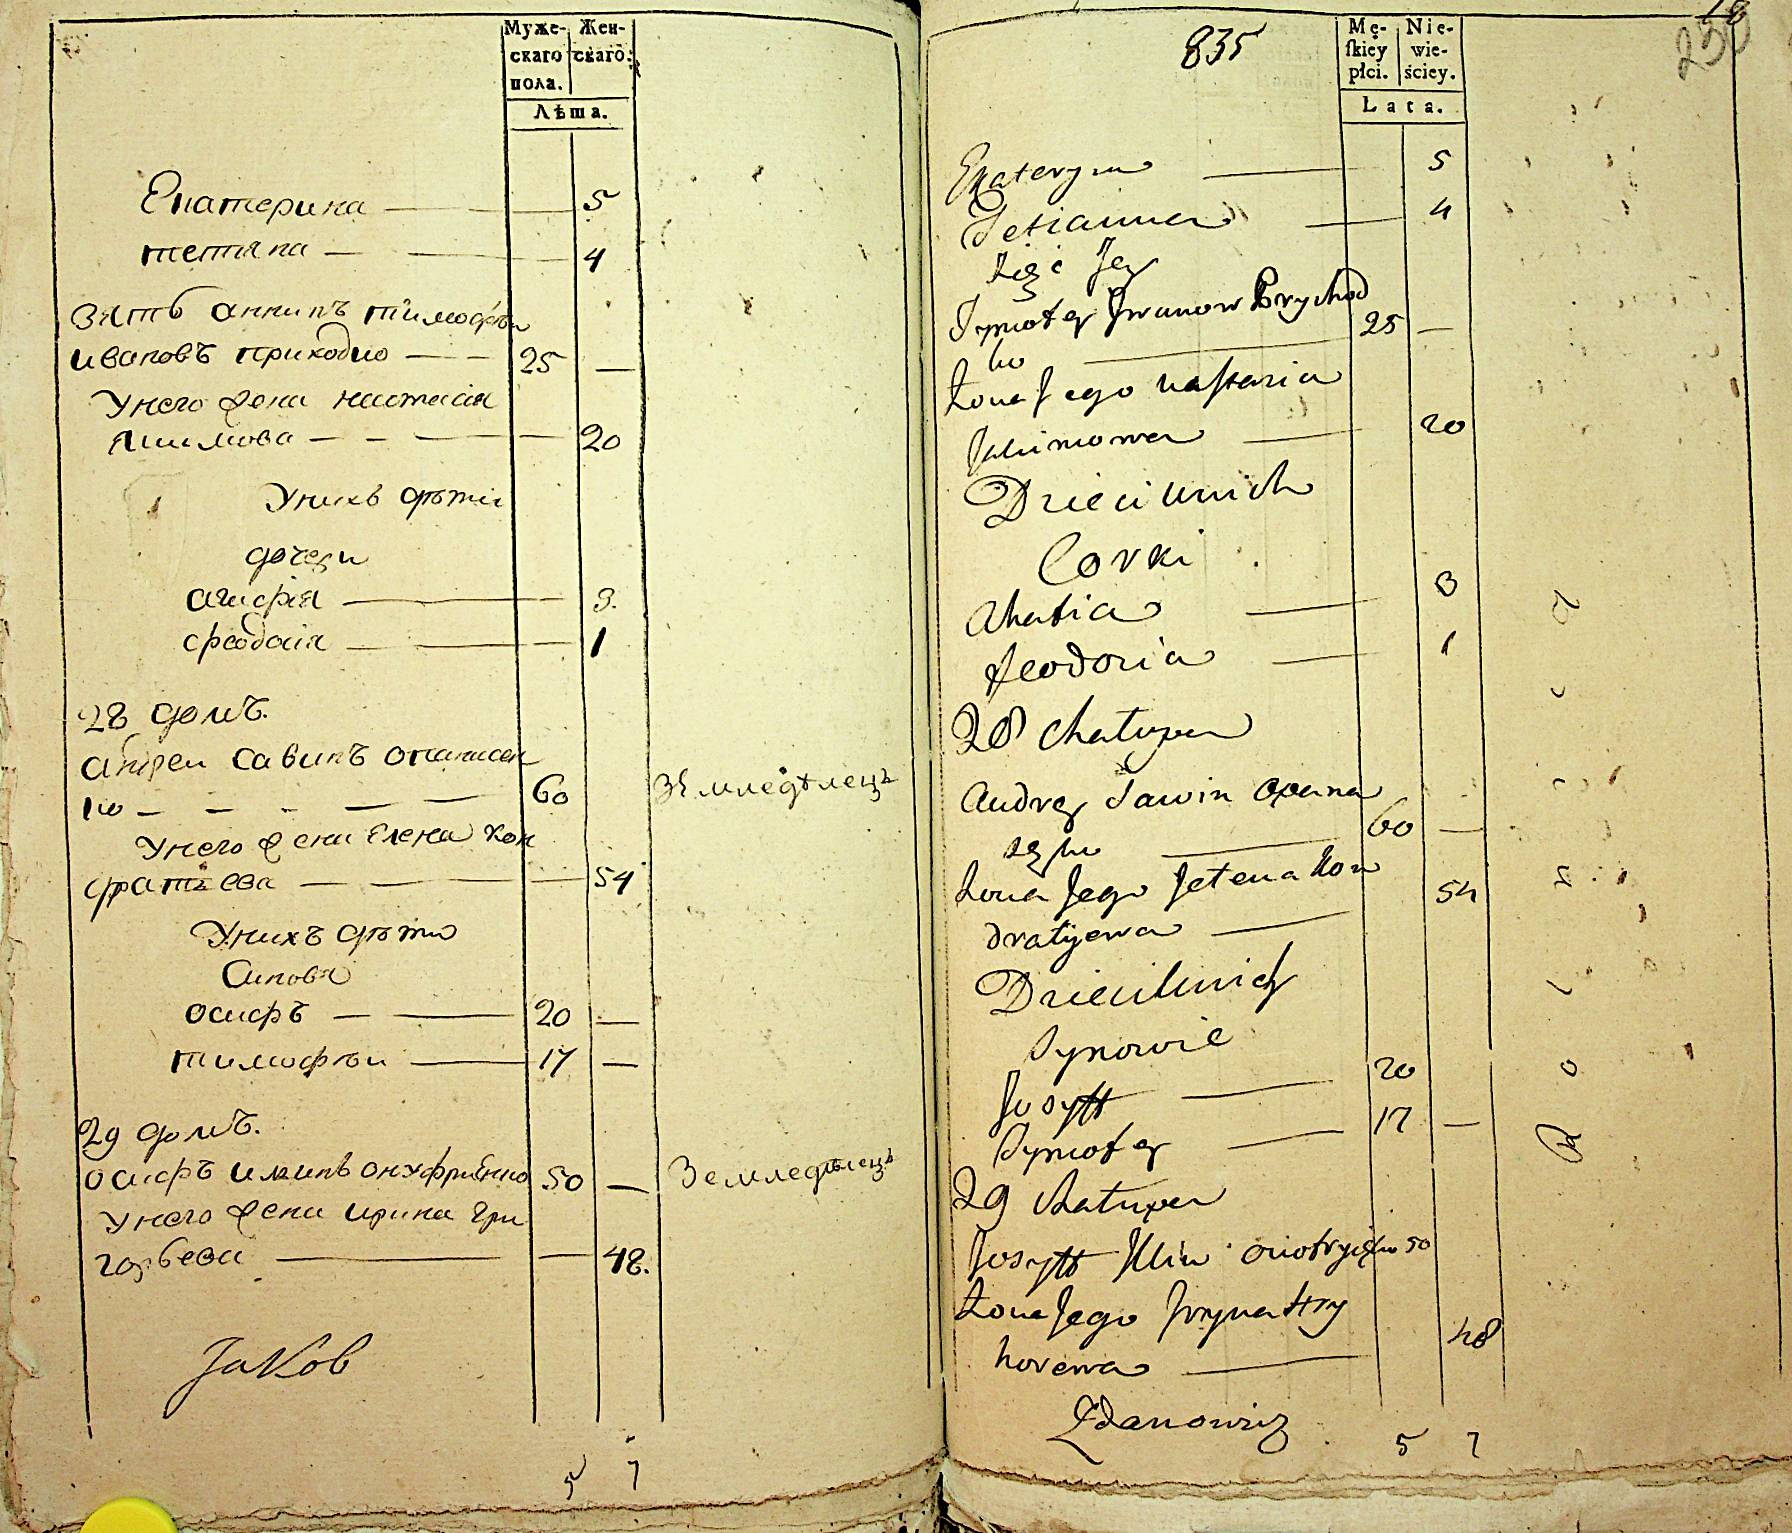 Муже- Жен-
скаго скаго.
пола.
Лѣта.
Екатерина — 5
тетяна — 4
Зять аннинъ тимофѣи
ивановъ приходко — 25 —
Унего жена настасия
якимова — 20
Унихъ дѣти
дочери
агафія — 3.
феодосія — 1
28 домъ.
андреи савинъ опанасен
ко — 60 Земледѣлецъ
Унего жена Елена кон
дратіева — 54
Унихъ дѣти
Синовя
осифъ — 20 —
тимофѣи — 17 —
29 домъ.
осифъ илинъ онуфриенко 50 — Земледѣлецъ
Унего жена ирина гри
горьева — 48.
Jakob
5 7
835
Mę- Nie-
ſkiey wie-
płci. ściey.
Lata.
Ekateryna — 5
Tetianna — 4
Zięć Jey
Tymofey Jwanow Prychod
ko — 25 —
Żona Jego Nastazia
Jakimowa — 20
Dzieci u nich
Corki
Ahafia — 3
Feodozia — 1
28 Chatupa
Andrey Sawin Opana
seyko — 60 —
Żona Jego Jelena Kon
dratyewa — 54
Dzieci u nich
Synowie
Josyff — 20
Tymofey — 17 —
29 Chatupa
Josyff Jllin onofryięko 50
Żona Jego Jryna Hry
horewa — 48
Zdanowicz
5 7